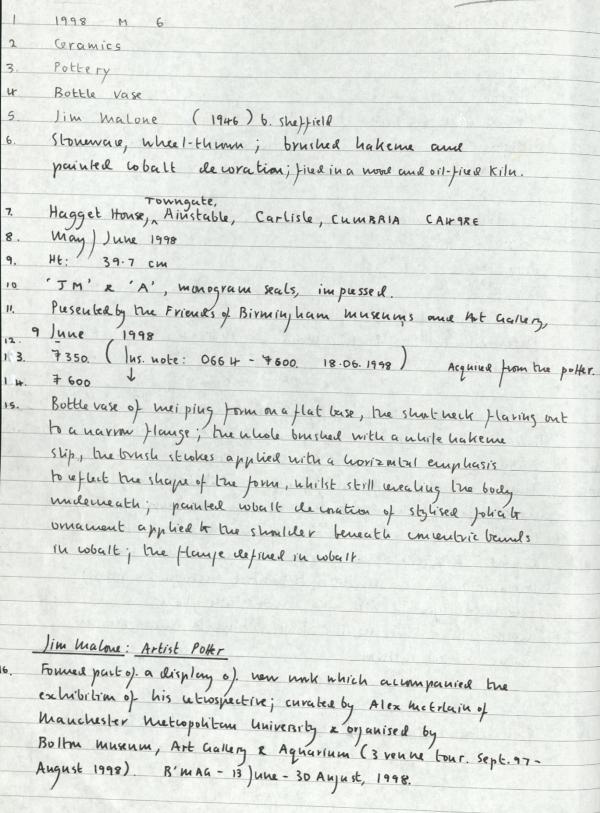 1 1998 M 6
2 Ceramics
3. Pottery
4 Bottle vase
5 Jim Malone (1946) b. Sheffield
6. Stoneware, wheel-thrown; brushed hakeme and
painted cobalt decoration; fired in a wood and oil-fired kiln.
7. Hagget House, Towngate, Ainstable, Carlisle, CUMBRIA CA4 9RE
8. May / June 1998
9. Ht: 39.7 cm
10 'JM' & 'A', monogram seals, impressed.
11. Presented by the Friends of Birmingham Museums and Art Gallery,
12. 9 June 1998
13. £350. (Ins. note: 0664 - £600. 18.06.1998) Acquired from the potter.
14. £600 ↓
15. Bottle vase of mei ping form on a flat base, the short neck flaring out
to a narrow flange; the whole brushed with a white hakeme
slip, the brush strokes applied with a horizontal emphasis
to reflect the shape of the form, whilst still revealing the body
underneath; painted cobalt decoration of stylised foliate
ornament applied to the shoulder beneath concentric bands
in cobalt; the flange defined in cobalt.
Jim Malone: Artist Potter
16. Formed part of a display of new work which accompanied the
exhibition of his retrospective; curated by Alex McErlain of
Manchester Metropolitan University & organised by
Bolton Museum, Art Gallery & Aquarium (3 venue tour. Sept. 97 -
August 1998). B'MAG - 13 June - 30 August, 1998.